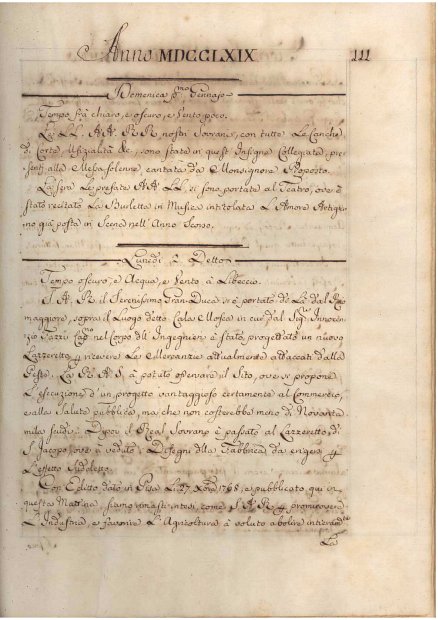 Anno MDCCLXIX
111
Domenica pmo Gennajo
Tempo frà chiaro, e oscuro, e Vento poco.
Le LL. AA. RR. nostri Sovrani, con tutte Le Cariche
di Corte, Ufizialità &c., sono state in quest' Insigne Collegiata, pre-
senti alla Messa solenne, cantata da Monsignore Proposto.
La sera Le prefate AA. LL. si sono portate al Teatro, ove è
stata recitata La Burletta in Musica intitolata L'Amore Artigia-
no già posta in Scena nell' Anno Scorso.
Lunedì 2. Detto
Tempo oscuro, e Acqua, e Vento à Libeccio.
S. A. R. il Serenissimo Gran-Duca si è portato di La dal Ri
maggiore, sopra il Luogo detto Cala Mosca in cui dal Sigr Innocen-
zio Fazzi nel Corpo dell' Ingegnieri è stato progettato un nuovo
Lazzeretto p ricevere Le Mercanzie attualmente attaccate dalla
Peste. La R. A. S. à potuto osservare il Sito, ove si propone
L'esecuzione d'un progetto vantaggioso certamente al Commercio,
e alla Salute pubblica, ma che non costerebbe meno di Novanta
mila scudi. Dipoi il Real Sovrano è passato al Lazzeretto di
S. Jacopo, ove à veduto i Disegni della Fabbrica da erigersi p
L'effetto sudetto.
Con Editto dato in Pisa Li 27. Xbre 1768, e pubblicato qui in
questa Mattina, siamo rimasti intesi come S. A. R. p promuovere
L'Industria, e favorire L'Agricoltura à voluto abolire interamte
La